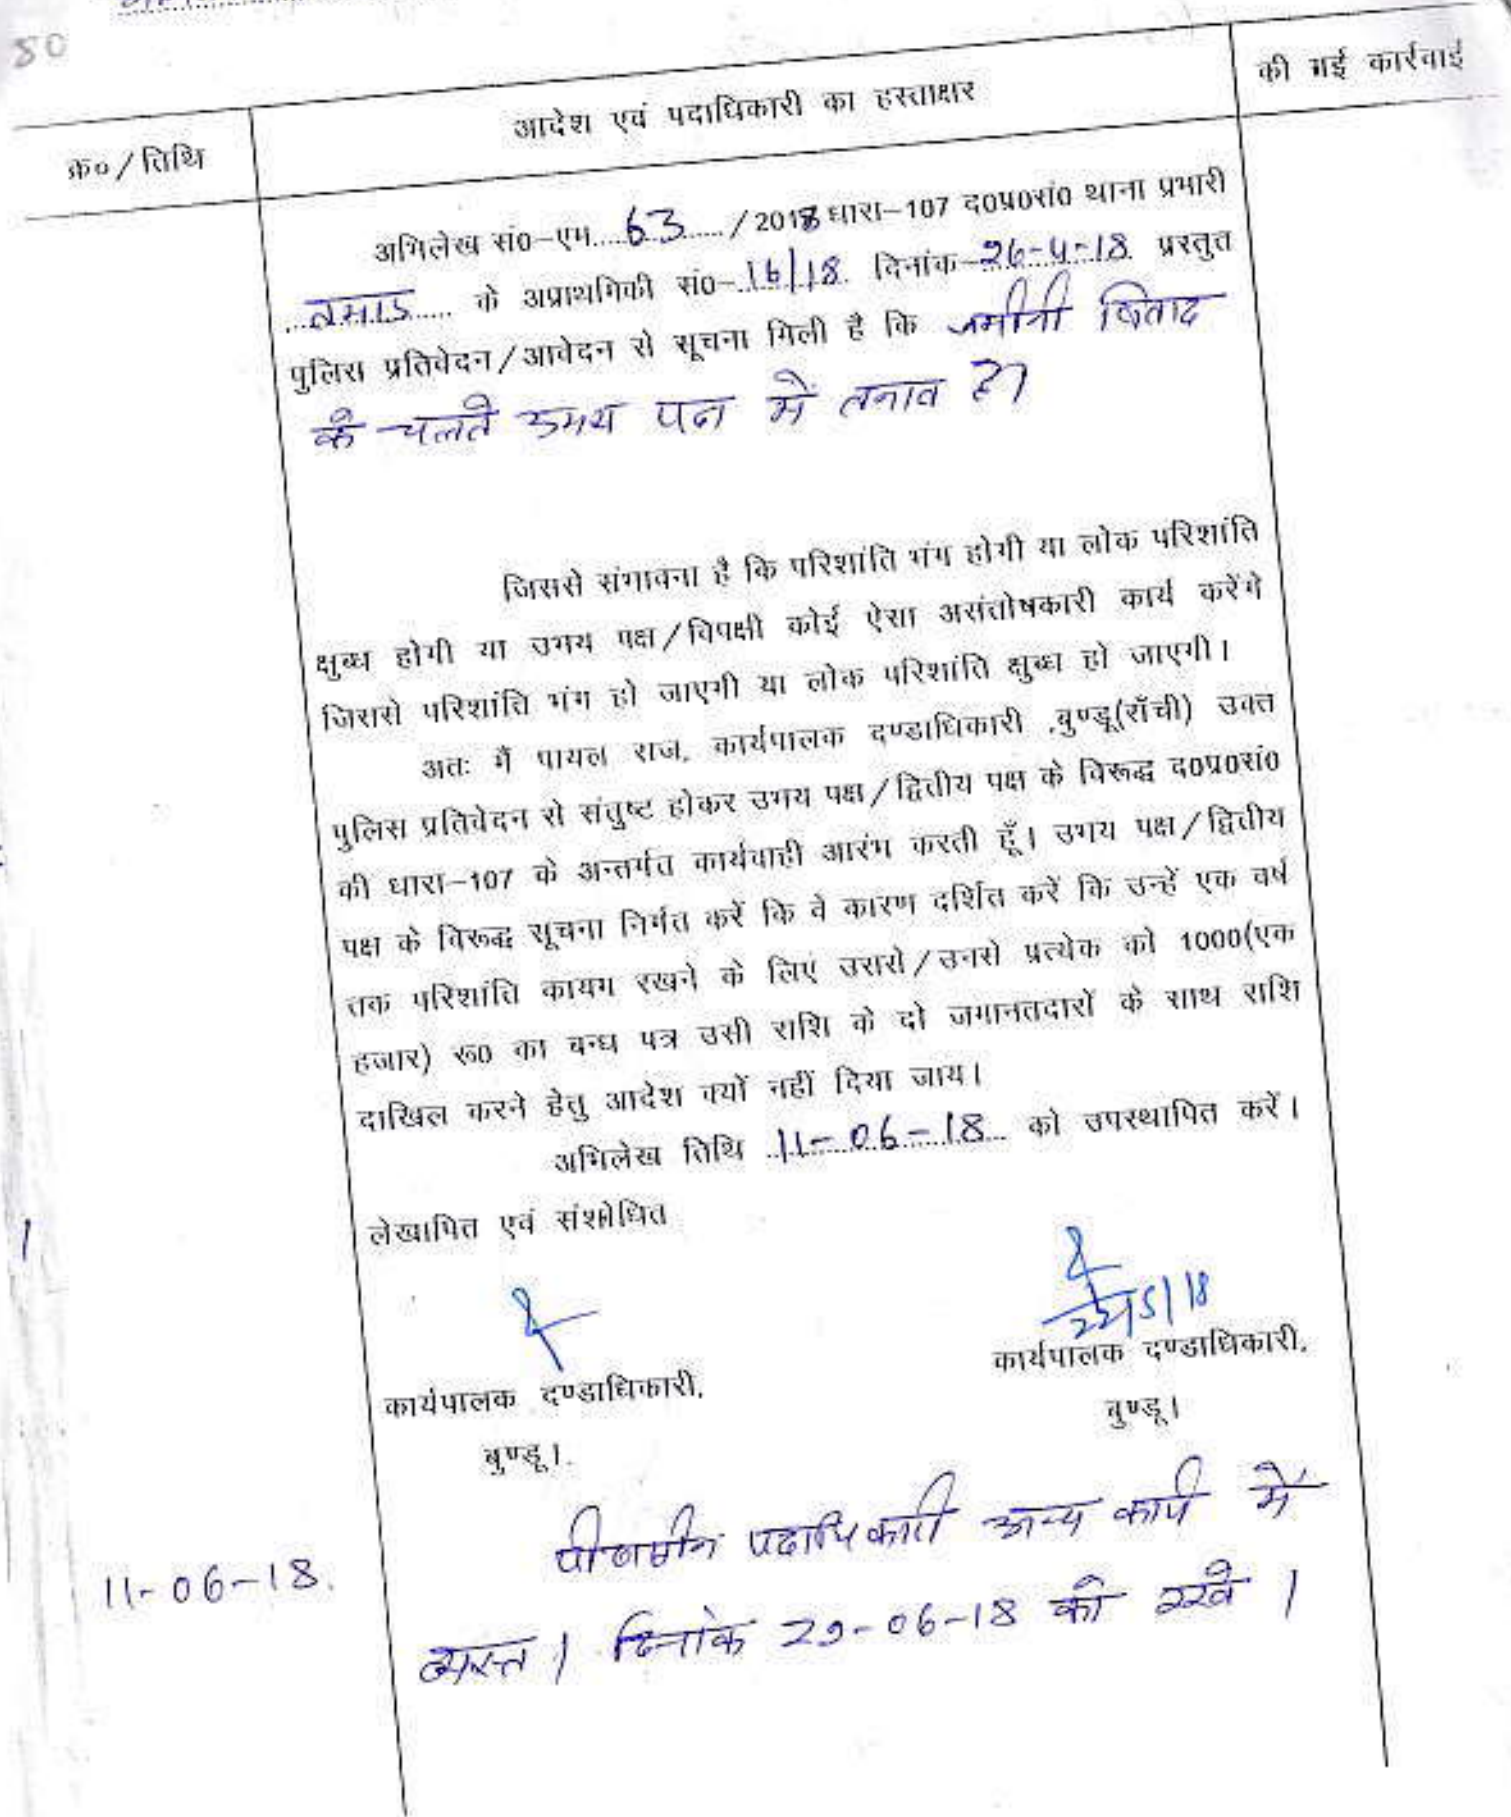 80
क्र०/तिथि
आदेश एवं पदाधिकारी का हस्ताक्षर
की गई कार्रवाई
अभिलेख सं0-एम....63..../2018 धारा-107 द0प्र0सं0 थाना प्रभारी
तमाड़ के अप्राथमिकी सं0-16/18 दिनांक-26-4-18 प्रस्तुत
पुलिस प्रतिवेदन/आवेदन से सूचना मिली है कि जमीनी विवाद
के चलते उभय पक्ष में तनाव है।
जिससे संभावना है कि परिशांति भंग होगी या लोक परिशांति
क्षुब्ध होगी या उभय पक्ष/विपक्षी कोई ऐसा असंतोषकारी कार्य करेंगे
जिससे परिशांति भंग हो जाएगी या लोक परिशांति क्षुब्ध हो जाएगी।
अतः मैं पायल राज, कार्यपालक दण्डाधिकारी ,बुण्डू(राँची) उक्त
पुलिस प्रतिवेदन से संतुष्ट होकर उभय पक्ष/द्वितीय पक्ष के विरूद्ध द0प्र0सं0
की धारा-107 के अन्तर्गत कार्यवाही आरंभ करती हूँ। उभय पक्ष/द्वितीय
पक्ष के विरूद्ध सूचना निर्गत करें कि वे कारण दर्शित करें कि उन्हें एक वर्ष
तक परिशांति कायम रखने के लिए उससे/उनसे प्रत्येक को 1000(एक
हजार) रू0 का बन्ध पत्र उसी राशि के दो जमानतदारों के साथ राशि
दाखिल करने हेतु आदेश क्यों नहीं दिया जाय।
अभिलेख तिथि 11-06-18 को उपस्थापित करें।
लेखापित एवं संशोधित
22/5/18
कार्यपालक दण्डाधिकारी,
कार्यपालक दण्डाधिकारी,
बुण्डू।
बुण्डू।
11-06-18.
पीठासीन पदाधिकारी अन्य कार्य में
व्यस्त। दिनांक 29-06-18 को रखें।